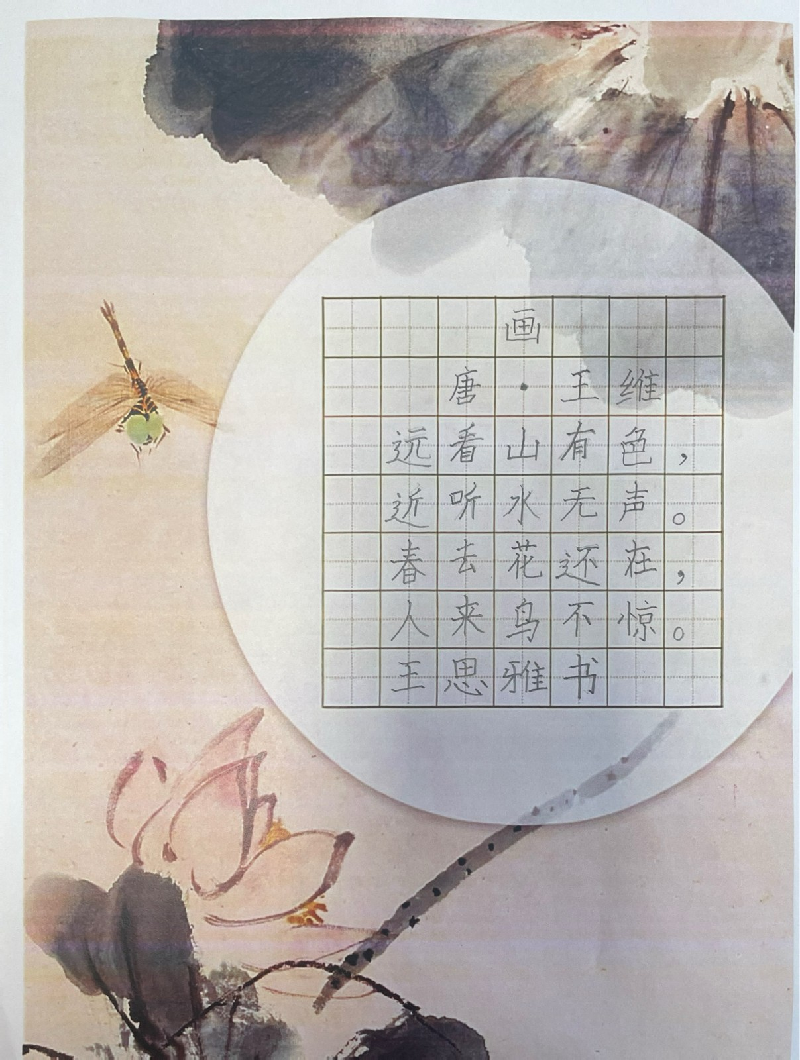 画
唐·王维
远看山有色，
近听水无声。
春去花还在，
人来鸟不惊。
王思雅书